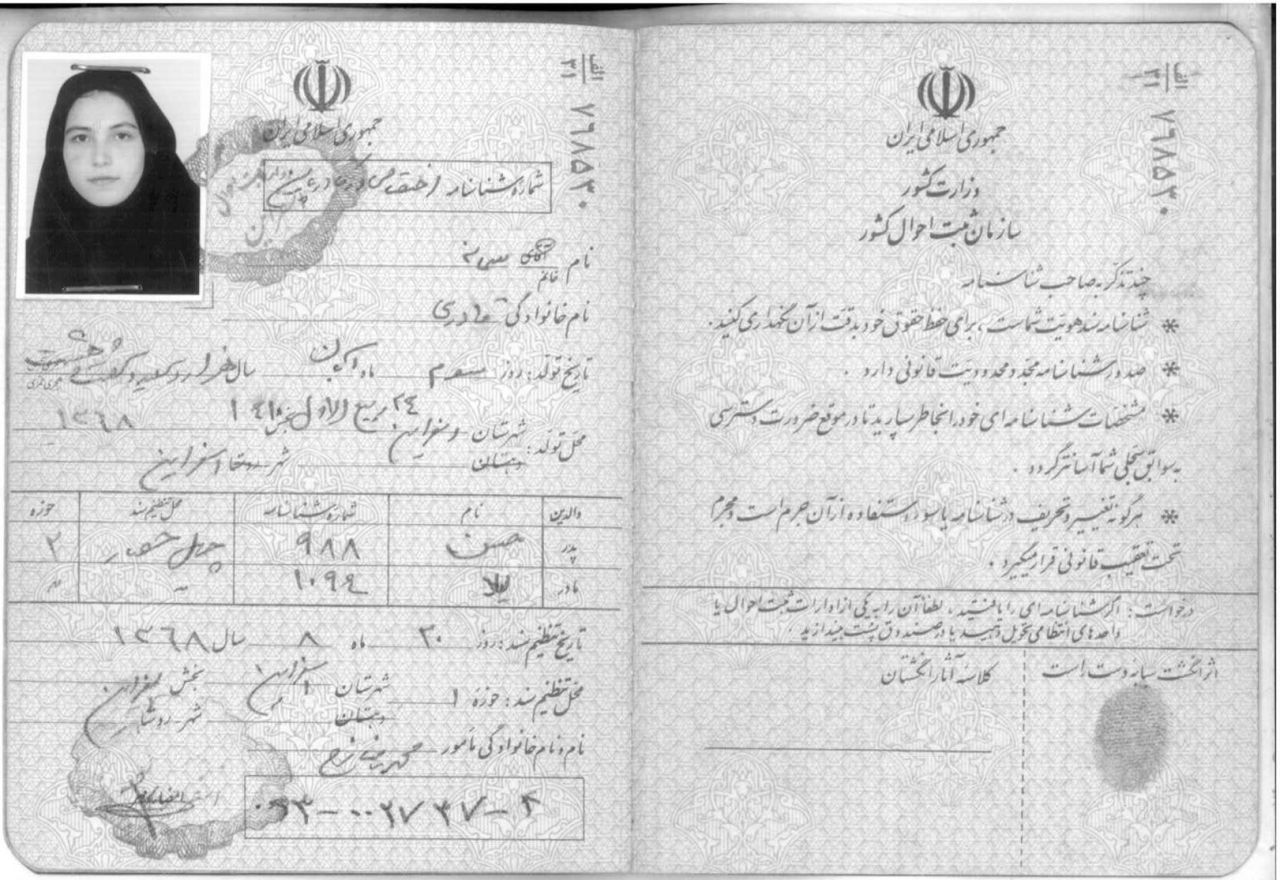 جمهوری اسلامی ایران
وزارت کشور
سازمان ثبت احوال کشور
چند تذکر به صاحب شناسنامه
* شناسنامه سند هویت شماست، برای حفظ حقوق خود بدقت از آن نگهداری کنید.
* صدور شناسنامه مجدد محدودیت قانونی دارد.
* مشخصات شناسنامه ای خود را بخاطر بسپارید تا در موقع ضرورت دسترسی
به سوابق سجلی شما آسانتر گردد.
* هرگونه تغییر و تحریف در شناسنامه یا سوء استفاده از آن جرم است و مجرم
تحت تعقیب قانونی قرار میگیرد.
درخواست: اگر شناسنامه ای را یافتید، لطفاً آن را به یکی از ادارات ثبت احوال یا
واحدهای انتظامی تحویل دهید یا در صندوق پست بیندازید.
اثر انگشت سبابه دست راست
کلاسه آثار انگشتان
الف
۳۱
۷۶۸۵۳۰
جمهوری اسلامی ایران
شماره شناسنامه
نام آقای خانم
نام خانوادگی
تاریخ تولد: روز سوم ماه آبان سال هزار و سیصد و شصت و هشت هجری شمسی
۲۴ ربیع الاول ۱۴۱۰ ۱۳۶۸
محل تولد: شهرستان اسفراین بخش
دهستان شهر روستا اسفراین
والدین نام شماره شناسنامه محل تنظیم سند حوزه
پدر حسن ۹۸۸ ۲
مادر لیلا ۱۰۹۴
تاریخ تنظیم سند: روز ۳۰ ماه ۸ سال ۱۳۶۸
محل تنظیم سند: حوزه ۱ شهرستان اسفراین بخش
دهستان شهر روستا
نام و نام خانوادگی مأمور محمد
الف
۳۱
۷۶۸۵۳۰